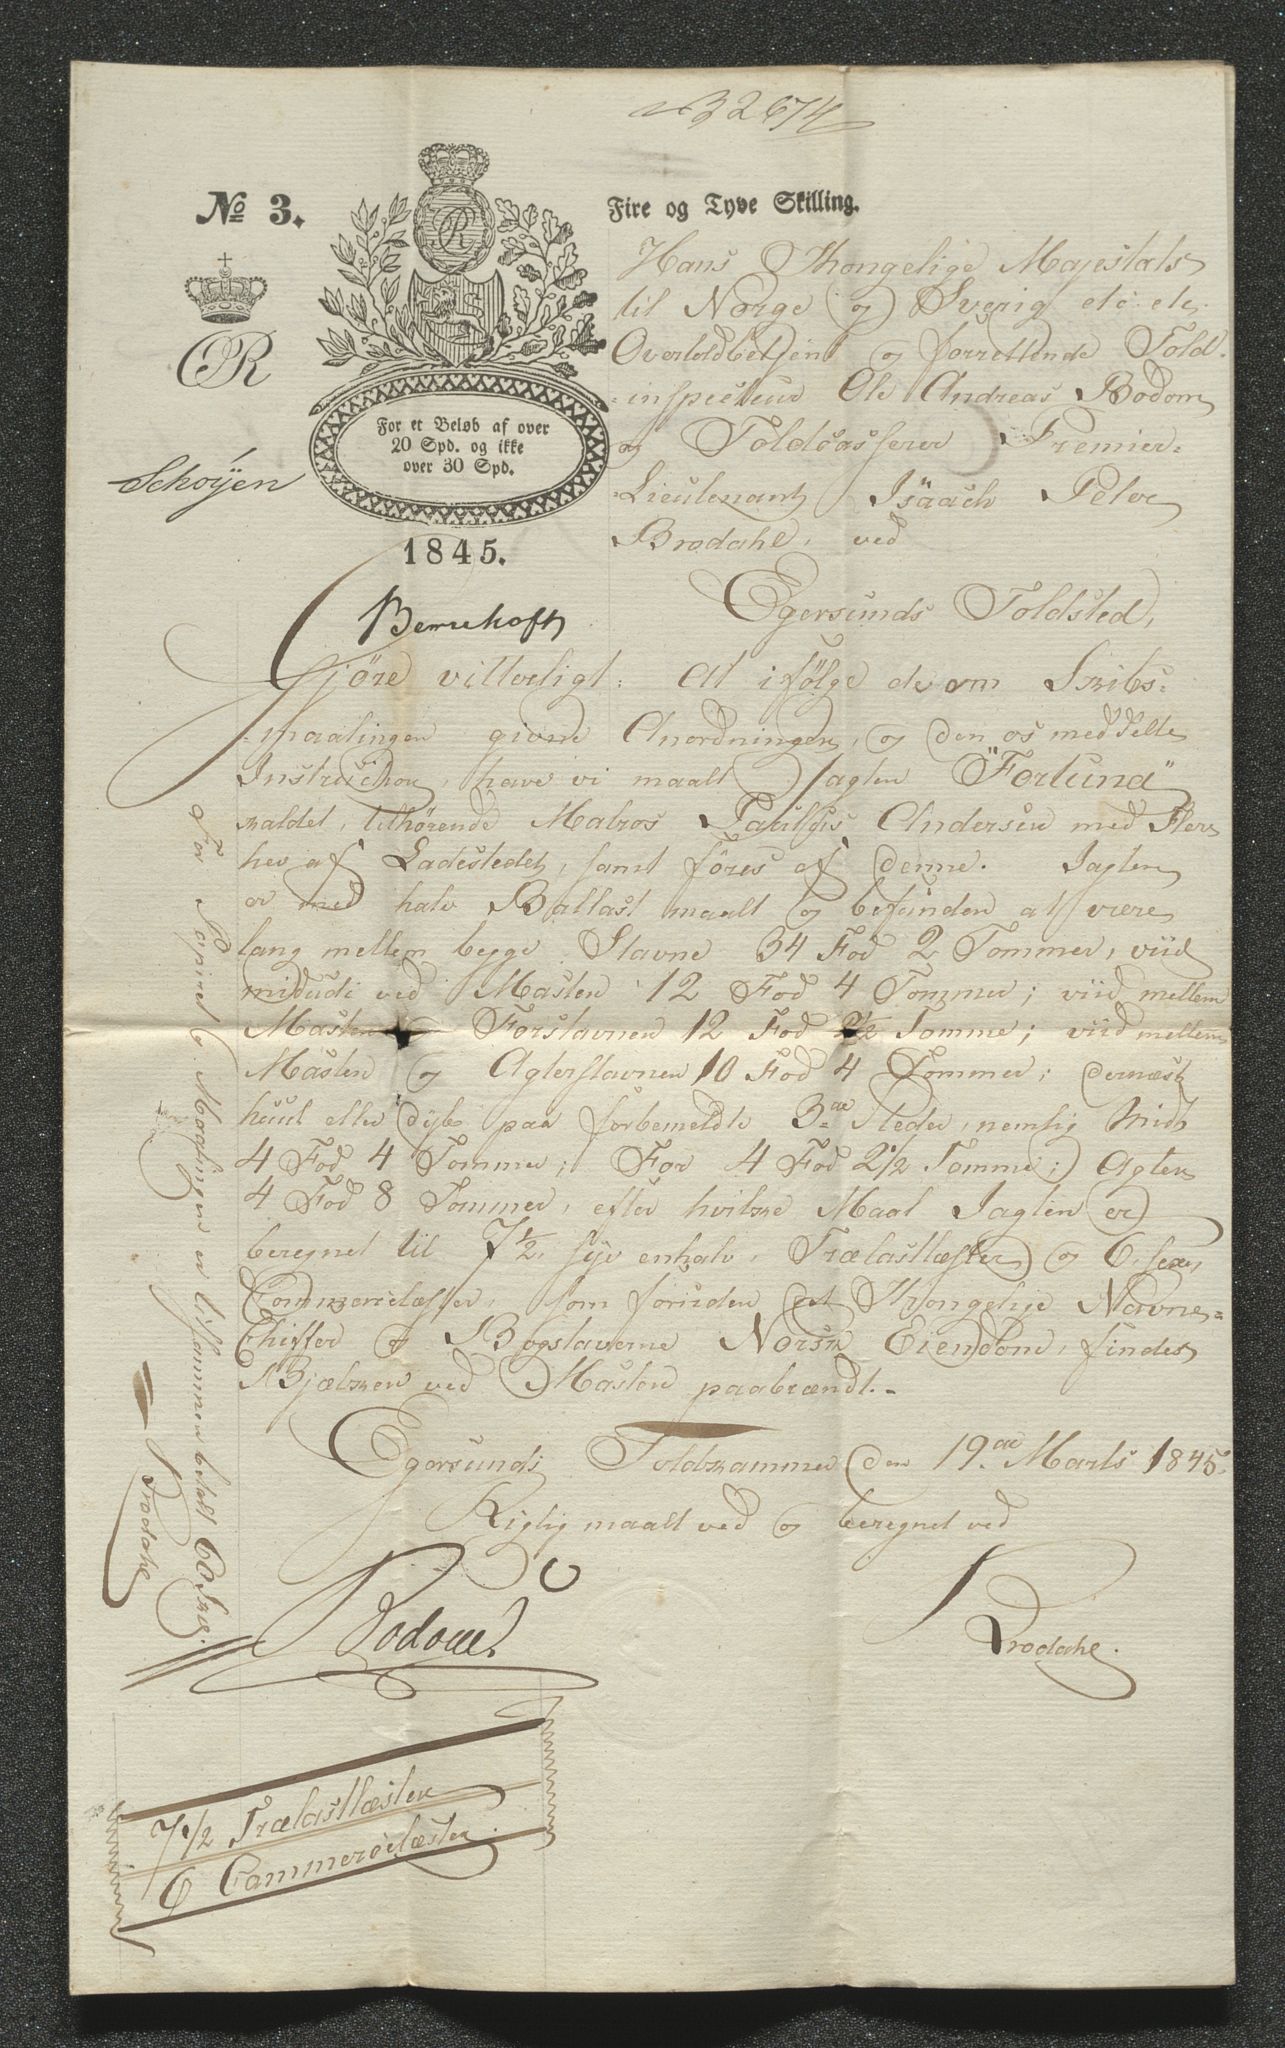 32674
No 3.
Fire og Tyve Skilling.
R
For et Beløb af over
20 Spd. og ikke
over 30 Spd.
1845.
CR
Schøyen
Hans Kongelige Majestæts
til Norge og Sverig etc etc
Overtoldbetjent og forrettende Told-
inspecteur Ole Andreas Bodom
og Toldcasserer Premier-
Lieutenant Isaach Peter
Brodahl, ved
Egersunds Toldsted,
Gjøre vitterligt: At ifølge de om Skibs-
maalingen givne Anordninger, og den os meddelte
Instruction, have vi maalt Jagten "Fortuna"
kaldet, tilhørende Matros Andersen med Flere
her af Ladestedet, samt føres af denne. Jagten
er med halv Ballast maalt og befunden at være
lang mellem begge Stavne 34 Fod 2 Tommer, viid
midudi ved Masten 12 Fod 4 Tommer; viid mellem
Masten og Forstavnen 12 Fod Tomme; viid mellem
Masten og Agterstavnen 10 Fod 4 Tommer; dernæst
huul eller dyb paa forbemeldte 3de Steder, nemlig Midt
4 Fod 4 Tommer; For 4 Fod 2 1/2 Tomme; Agter
4 Fod 8 Tommer, efter hvilke Maal Jagten er
beregnet til 7 1/2, syv enhalv, Trælastlæster og 6, sex,
Commercelæster, som foruden et Kongelige Navne-
Chiffer og Bogstaverne Norsk Eiendom, findes
i Bjælken ved Masten paabrændt.-
Egersunds Toldkammer den 19de Marts 1845.
Rigtig maalt ved og beregnet ved
Bodom
Brodahl.
For Papiret & Maalingen er tilsammen betalt 60 Sk.
Brodahl
7 1/2 Trælastlæster
6 Commercelæster.